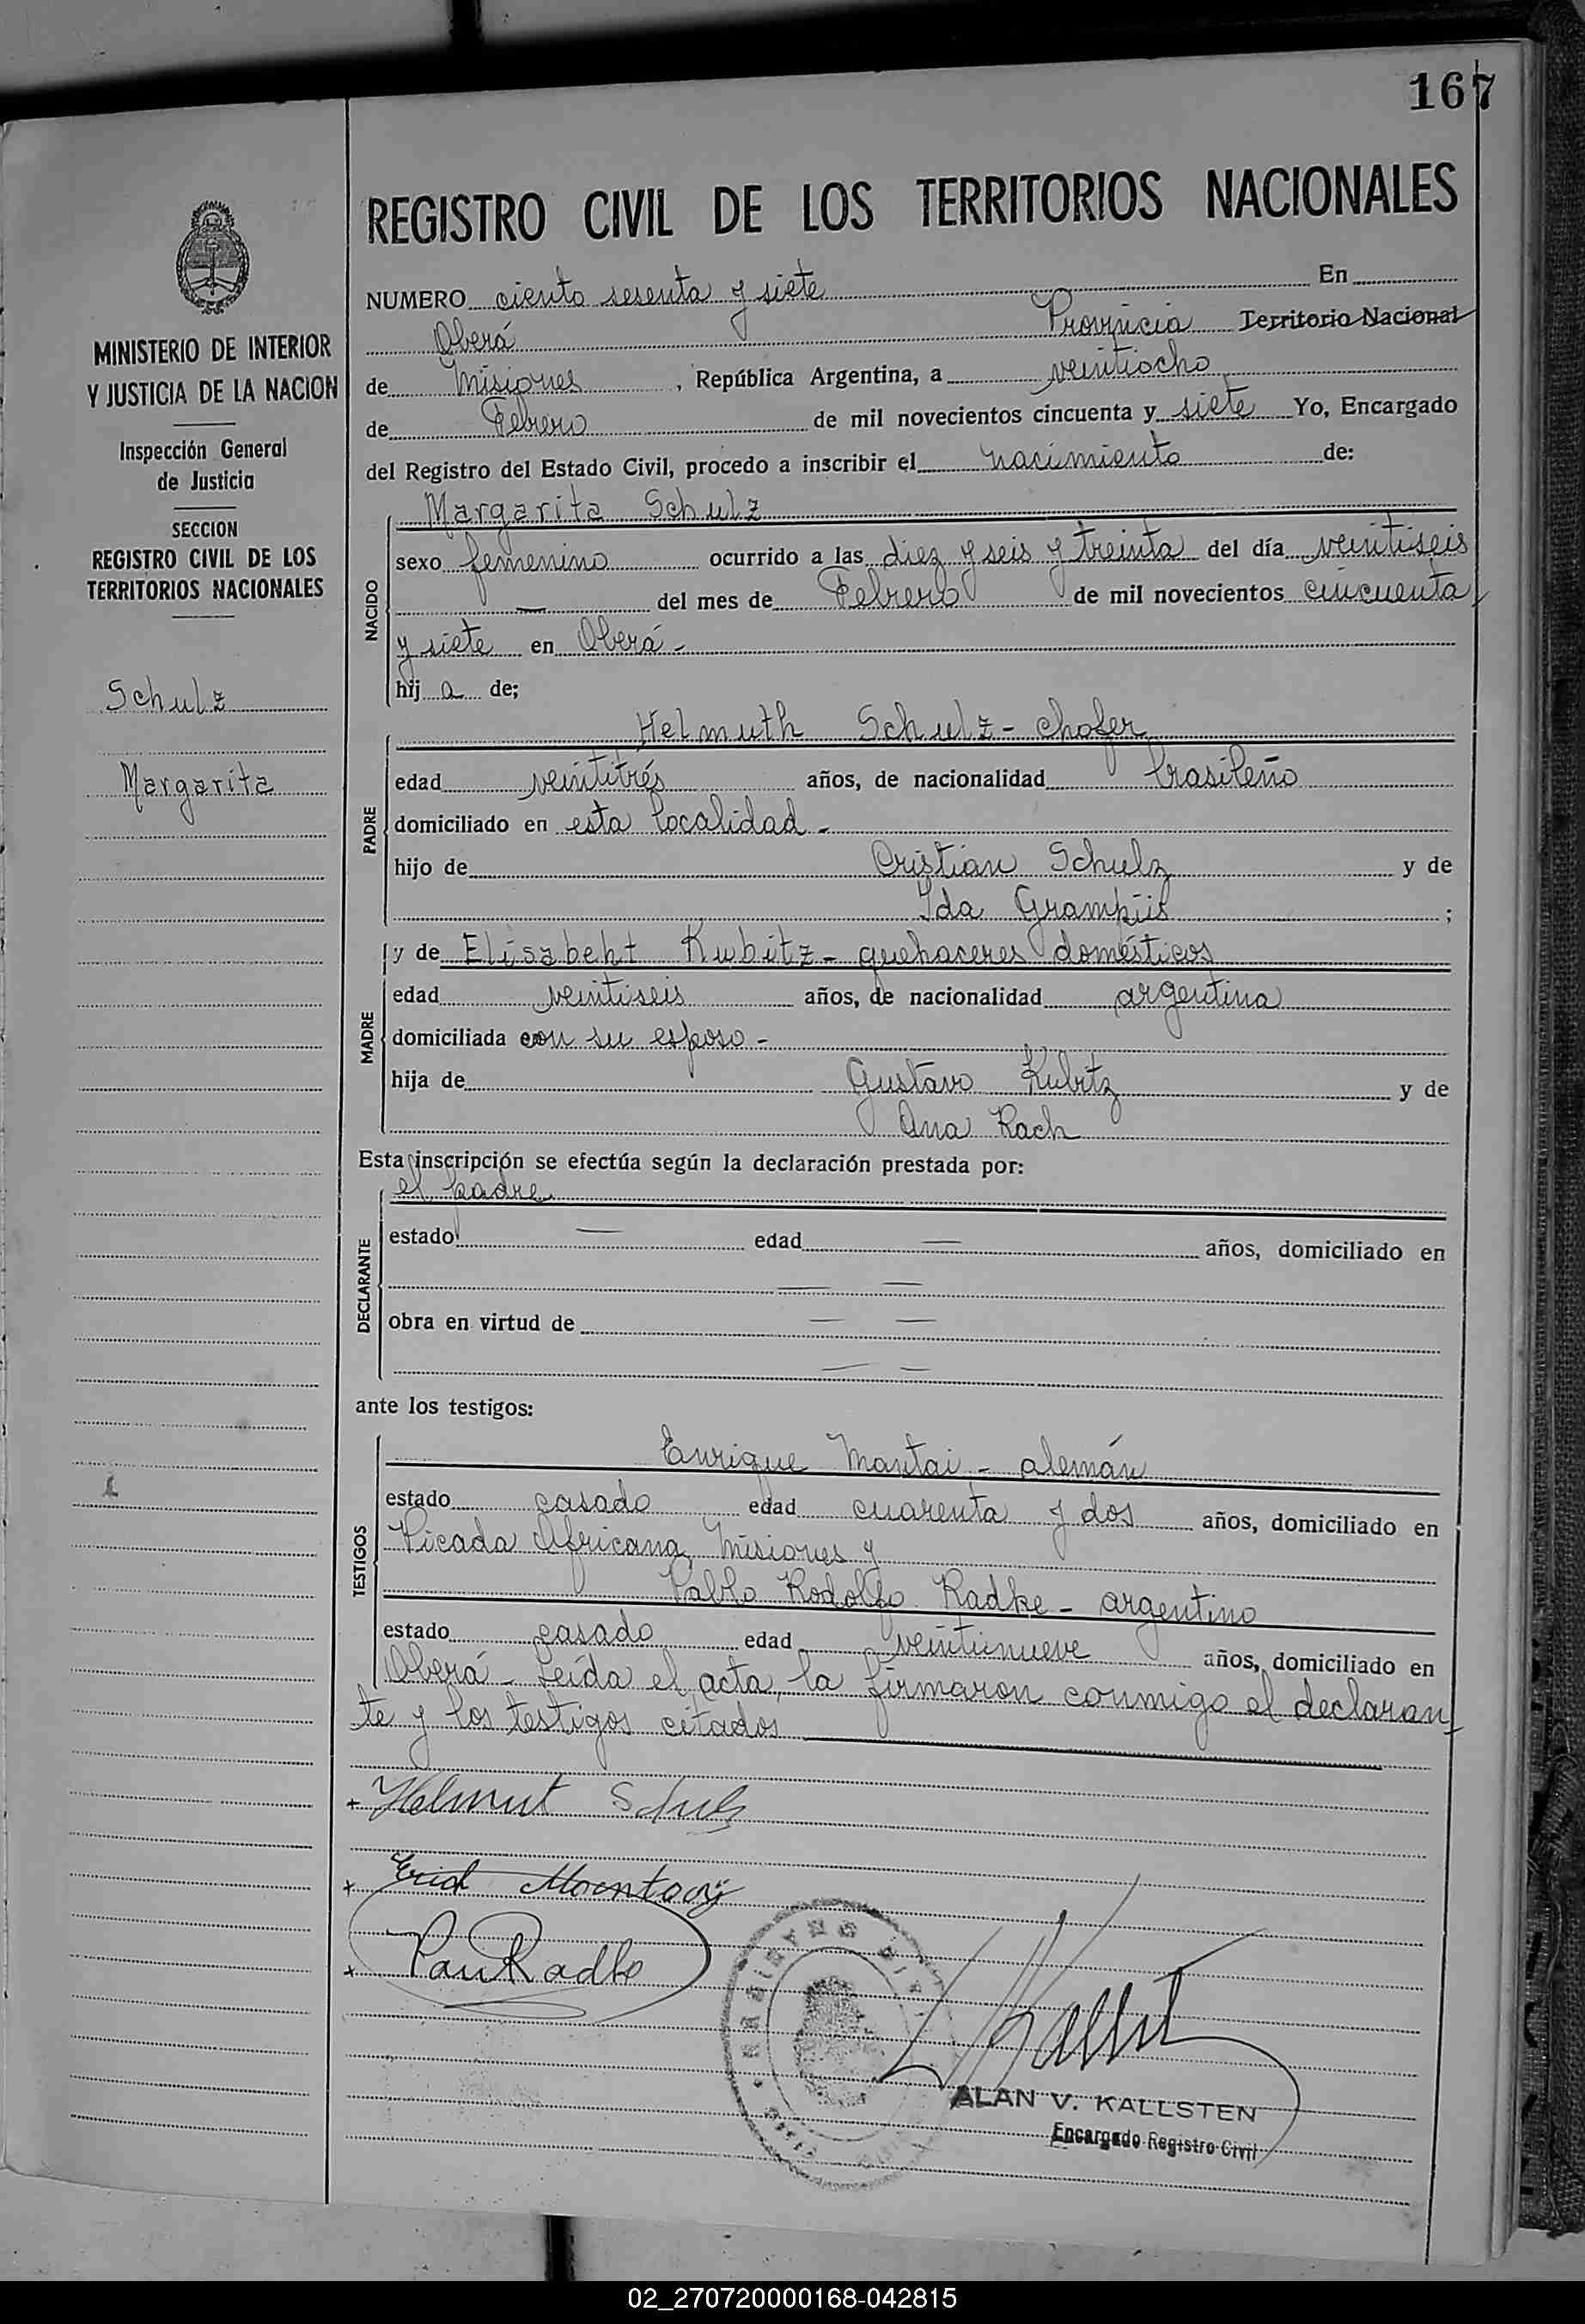 167
REGISTRO CIVIL DE LOS TERRITORIOS NACIONALES
MINISTERIO DE INTERIOR
Y JUSTICIA DE LA NACION
Inspección General
de Justicia
SECCION
REGISTRO CIVIL DE LOS
TERRITORIOS NACIONALES
Schulz
Margarita
NUMERO ciento sesenta y siete En
Oberá Provincia Territorio Nacional
de Misiones, República Argentina, a veintiocho
de Febrero de mil novecientos cincuenta y siete Yo, Encargado
del Registro del Estado Civil, procedo a inscribir el nacimiento de:
NACIDO
Margarita Schulz
sexo femenino ocurrido a las diez y seis y treinta del día veintiseis
— del mes de Febrero de mil novecientos cincuenta
y siete en Oberá -
hij a de;
PADRE
Helmuth Schulz - chofer
edad veintitrés años, de nacionalidad brasileño
domiciliado en esta localidad -
hijo de Cristian Schulz y de
Ida ;
MADRE
y de Elisabeht Kubitz - quehaceres domésticos
edad veintiseis años, de nacionalidad argentina
domiciliada con su esposo -
hija de Gustavo Kubitz y de
Ana Rach
Esta inscripción se efectúa según la declaración prestada por:
DECLARANTE
el padre
estado — edad — años, domiciliado en
— —
obra en virtud de — —
— —
ante los testigos:
TESTIGOS
Enrique Mantai - alemán
estado casado edad cuarenta y dos años, domiciliado en
Picada Africana, Misiones y
Pablo Rodolfo Radke - argentino
estado casado edad veintinueve años, domiciliado en
Oberá - Leída el acta, la firmaron conmigo el declaran-
te y los testigos citados
+ Helmut Schulz
+ Mantay
+ Radke
ALAN V. KALLSTEN
Encargado Registro Civil
02_270720000168-042815